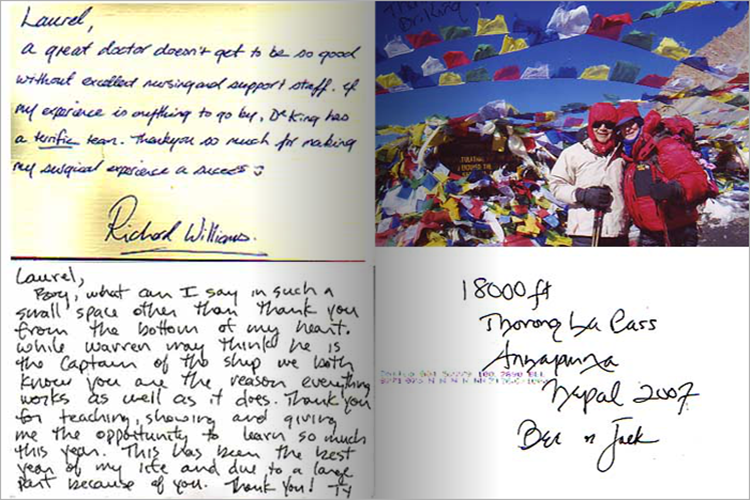 Laurel,
a great doctor doesn't get to be so good
without excellent nursing and support staff. If
my experience is anything to go by, Dr King has
a terrific team. Thankyou so much for making
my surgical experience a success
Richard Williams.
Dr. King
THORONG
Laurel,
Boy, what can I say in such a
small space other than thank you
from the bottom of my heart.
While Warren may think he is
the Captain of the ship we both
know you are the reason everything
works as well as it does. Thank you
for teaching, showing and giving
me the opportunity to learn so much
this year. This has been the best
year of my life and due to a large
part because of you. Thank you! Ty
18000 ft
Thorong La Pass
Annapurna
Nepal 2007
Bev n Jack